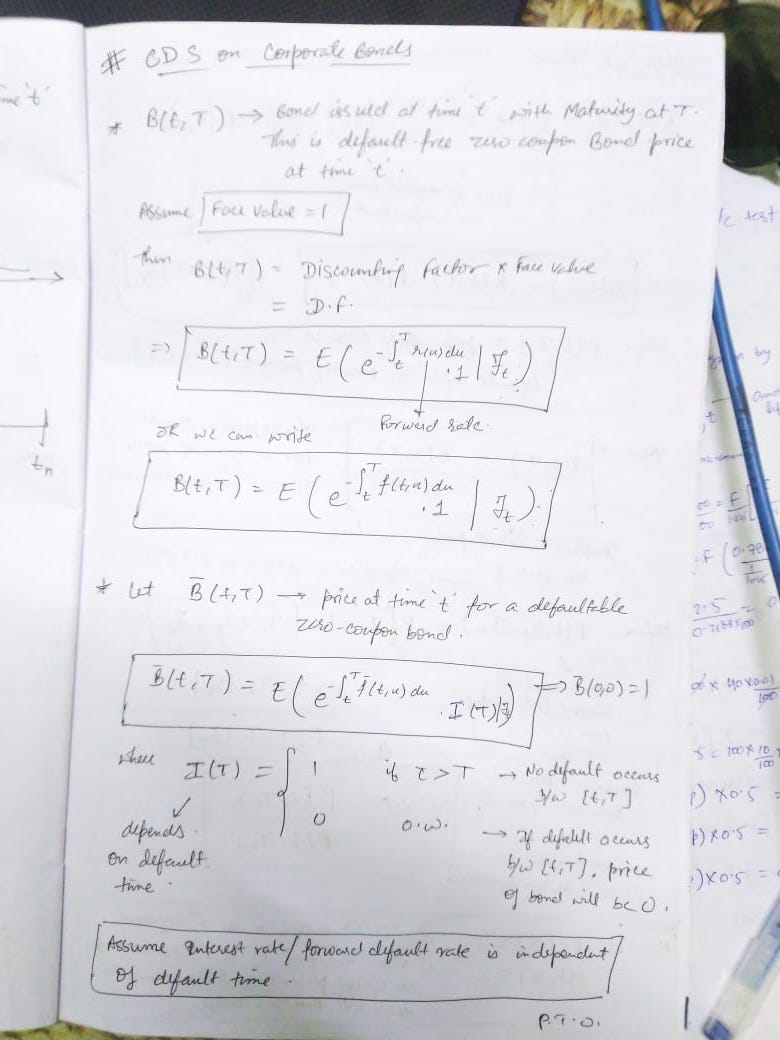 # CDS on Corporate Bonds
* B(t,T) → Bond issued at time 't' with Maturity at T.
This is default-free zero coupon Bond price
at time 't'.
Assume Face Value = 1
then B(t,T) = Discounting factor x Face value
= D.f.
⇒ B(t,T) = E(e^{-∫_t^T r(u)du} .1 | ℱ_t)
Forward rate.
OR we can write
B(t,T) = E(e^{-∫_t^T f(t,u)du} .1 | ℱ_t)
* Let B̄(t,T) → price at time 't' for a defaultable
zero-coupon bond.
B̄(t,T) = E(e^{-∫_t^T f̄(t,u)du} . I(T)|ℱ) ⇒ B̄(0,0)=1
where I(T) = { 1 if τ>T → No default occurs
b/w [t,T]
0 o.w. → If default occurs
b/w [t,T], price
of bond will be 0.
depends
on default
time.
Assume interest rate/forward default rate is independent
of default time.
P.T.O.
me 't'
tn